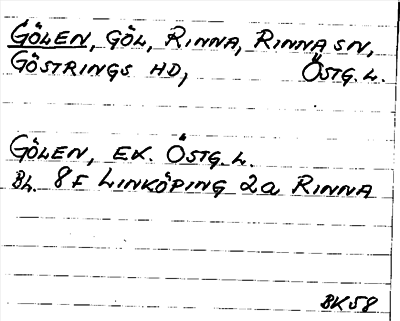 GÖLEN, GÖL, RINNA, RINNA SN,
GÖSTRINGS HD, ÖSTG. L.
GÖLEN, EK. ÖSTG. L.
BL. 8F LINKÖPING 2a RINNA
BK58